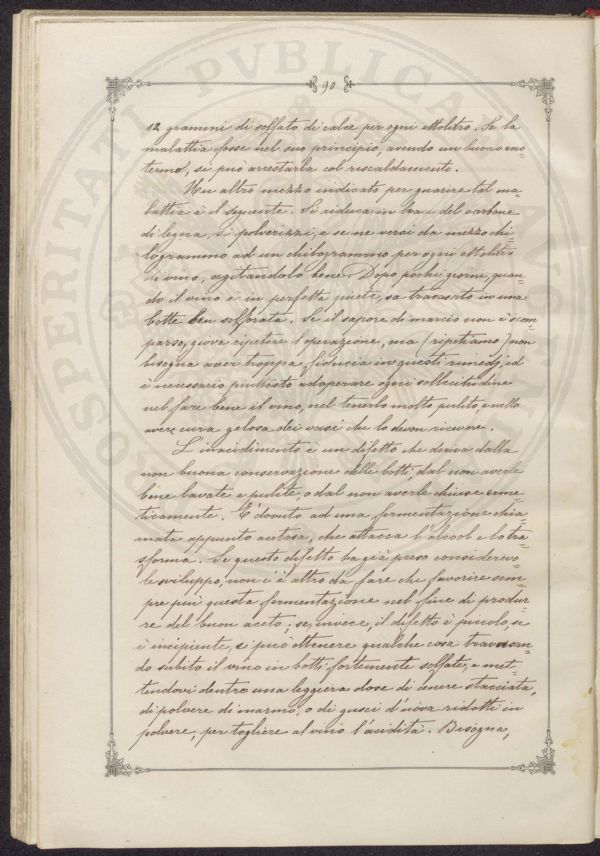 90
12 grammi di solfato di calce per ogni ettolitro. Se la
malattia fosse nel suo principio, avendo un buono eno-
termo, si può arrestarla col riscaldamento.
Un altro mezzo indicato per guarire tal ma-
lattia è il seguente. Si riduca in braci del carbone
di legna, si polverizzi, e se ne versi da mezzo chi-
logrammo ad un chilogrammo per ogni ettolitro
di vino, agitandolo bene. Dopo pochi giorni, quan-
do il vino è in perfetta quiete, va travasato in una
botte ben solforata. Se il sapore di marcio non è scom-
parso, giova ripetere l'operazione, ma (ripetiamo) non
bisogna aver troppa fiducia in questi rimedj, ed
è necessario piuttosto adoperare ogni sollecitudine
nel fare bene il vino, nel tenerlo molto pulito, e nello
avere cura gelosa dei vasi che lo devon ricevere.
L'inacidimento è un difetto che deriva dalla
non buona conservazione delle botti, dal non averle
bene lavate e pulite, o dal non averle chiuse erme-
ticamente. E' dovuto ad una fermentazione chia-
mata appunto acetosa, che attacca l'alcool e lo tra-
sforma. Se questo difetto ha già preso considerevo-
le sviluppo, non c'è altro da fare che favorire sem-
pre più questa fermentazione nel fine di produr-
re del buon aceto; se, invece, il difetto è piccolo, se
è incipiente, si può ottenere qualche cosa travasan-
do subito il vino in botti fortemente solfate, e met-
tendovi dentro una leggiera dose di cenere stacciata,
di polvere di marmo, o di gusci d'uova ridotti in
polvere, per togliere al vino l'acidità. Bisogna,
PROSPERITATI PVBLICAE AVGENDAE